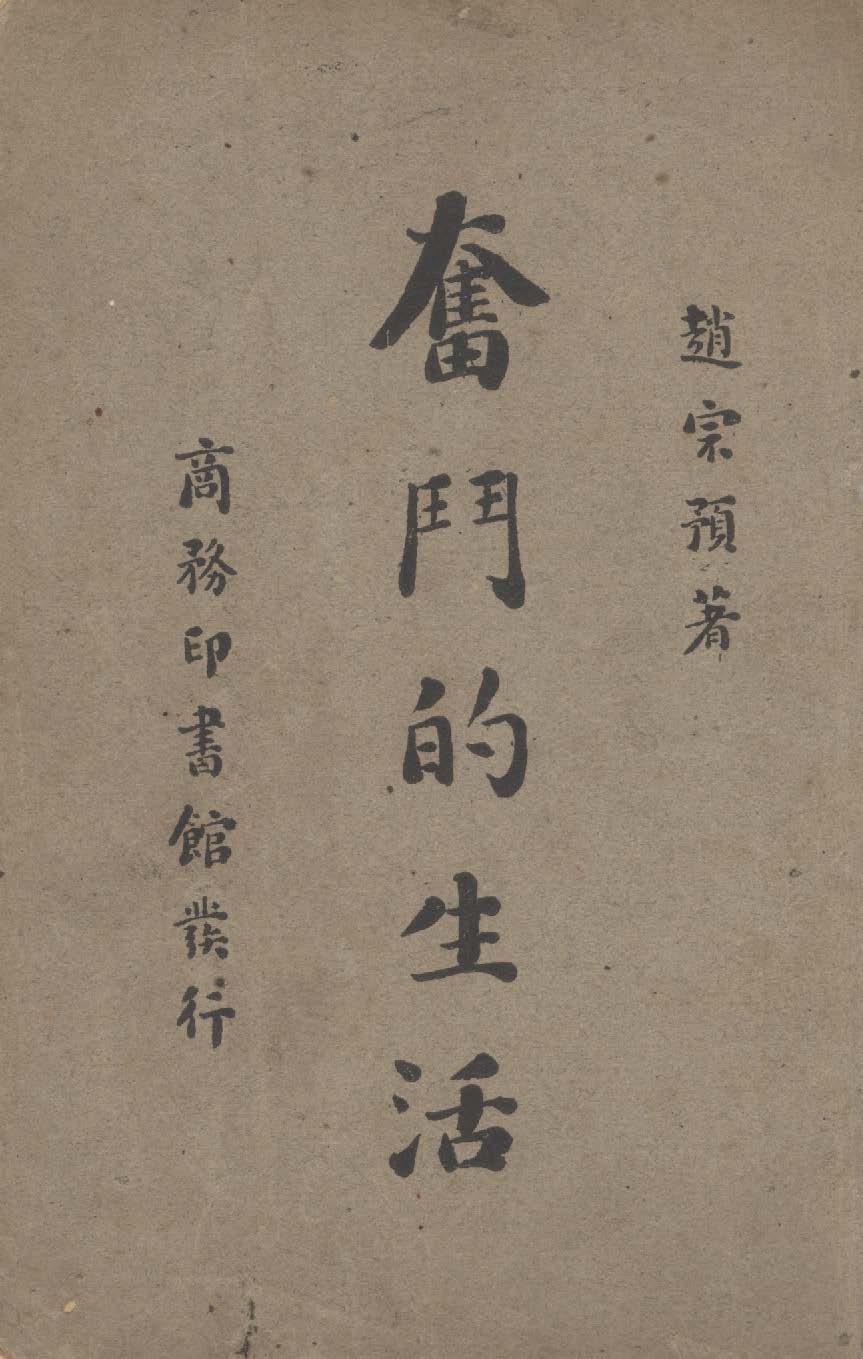 趙宗預著
奮鬥的生活
商務印書館發行